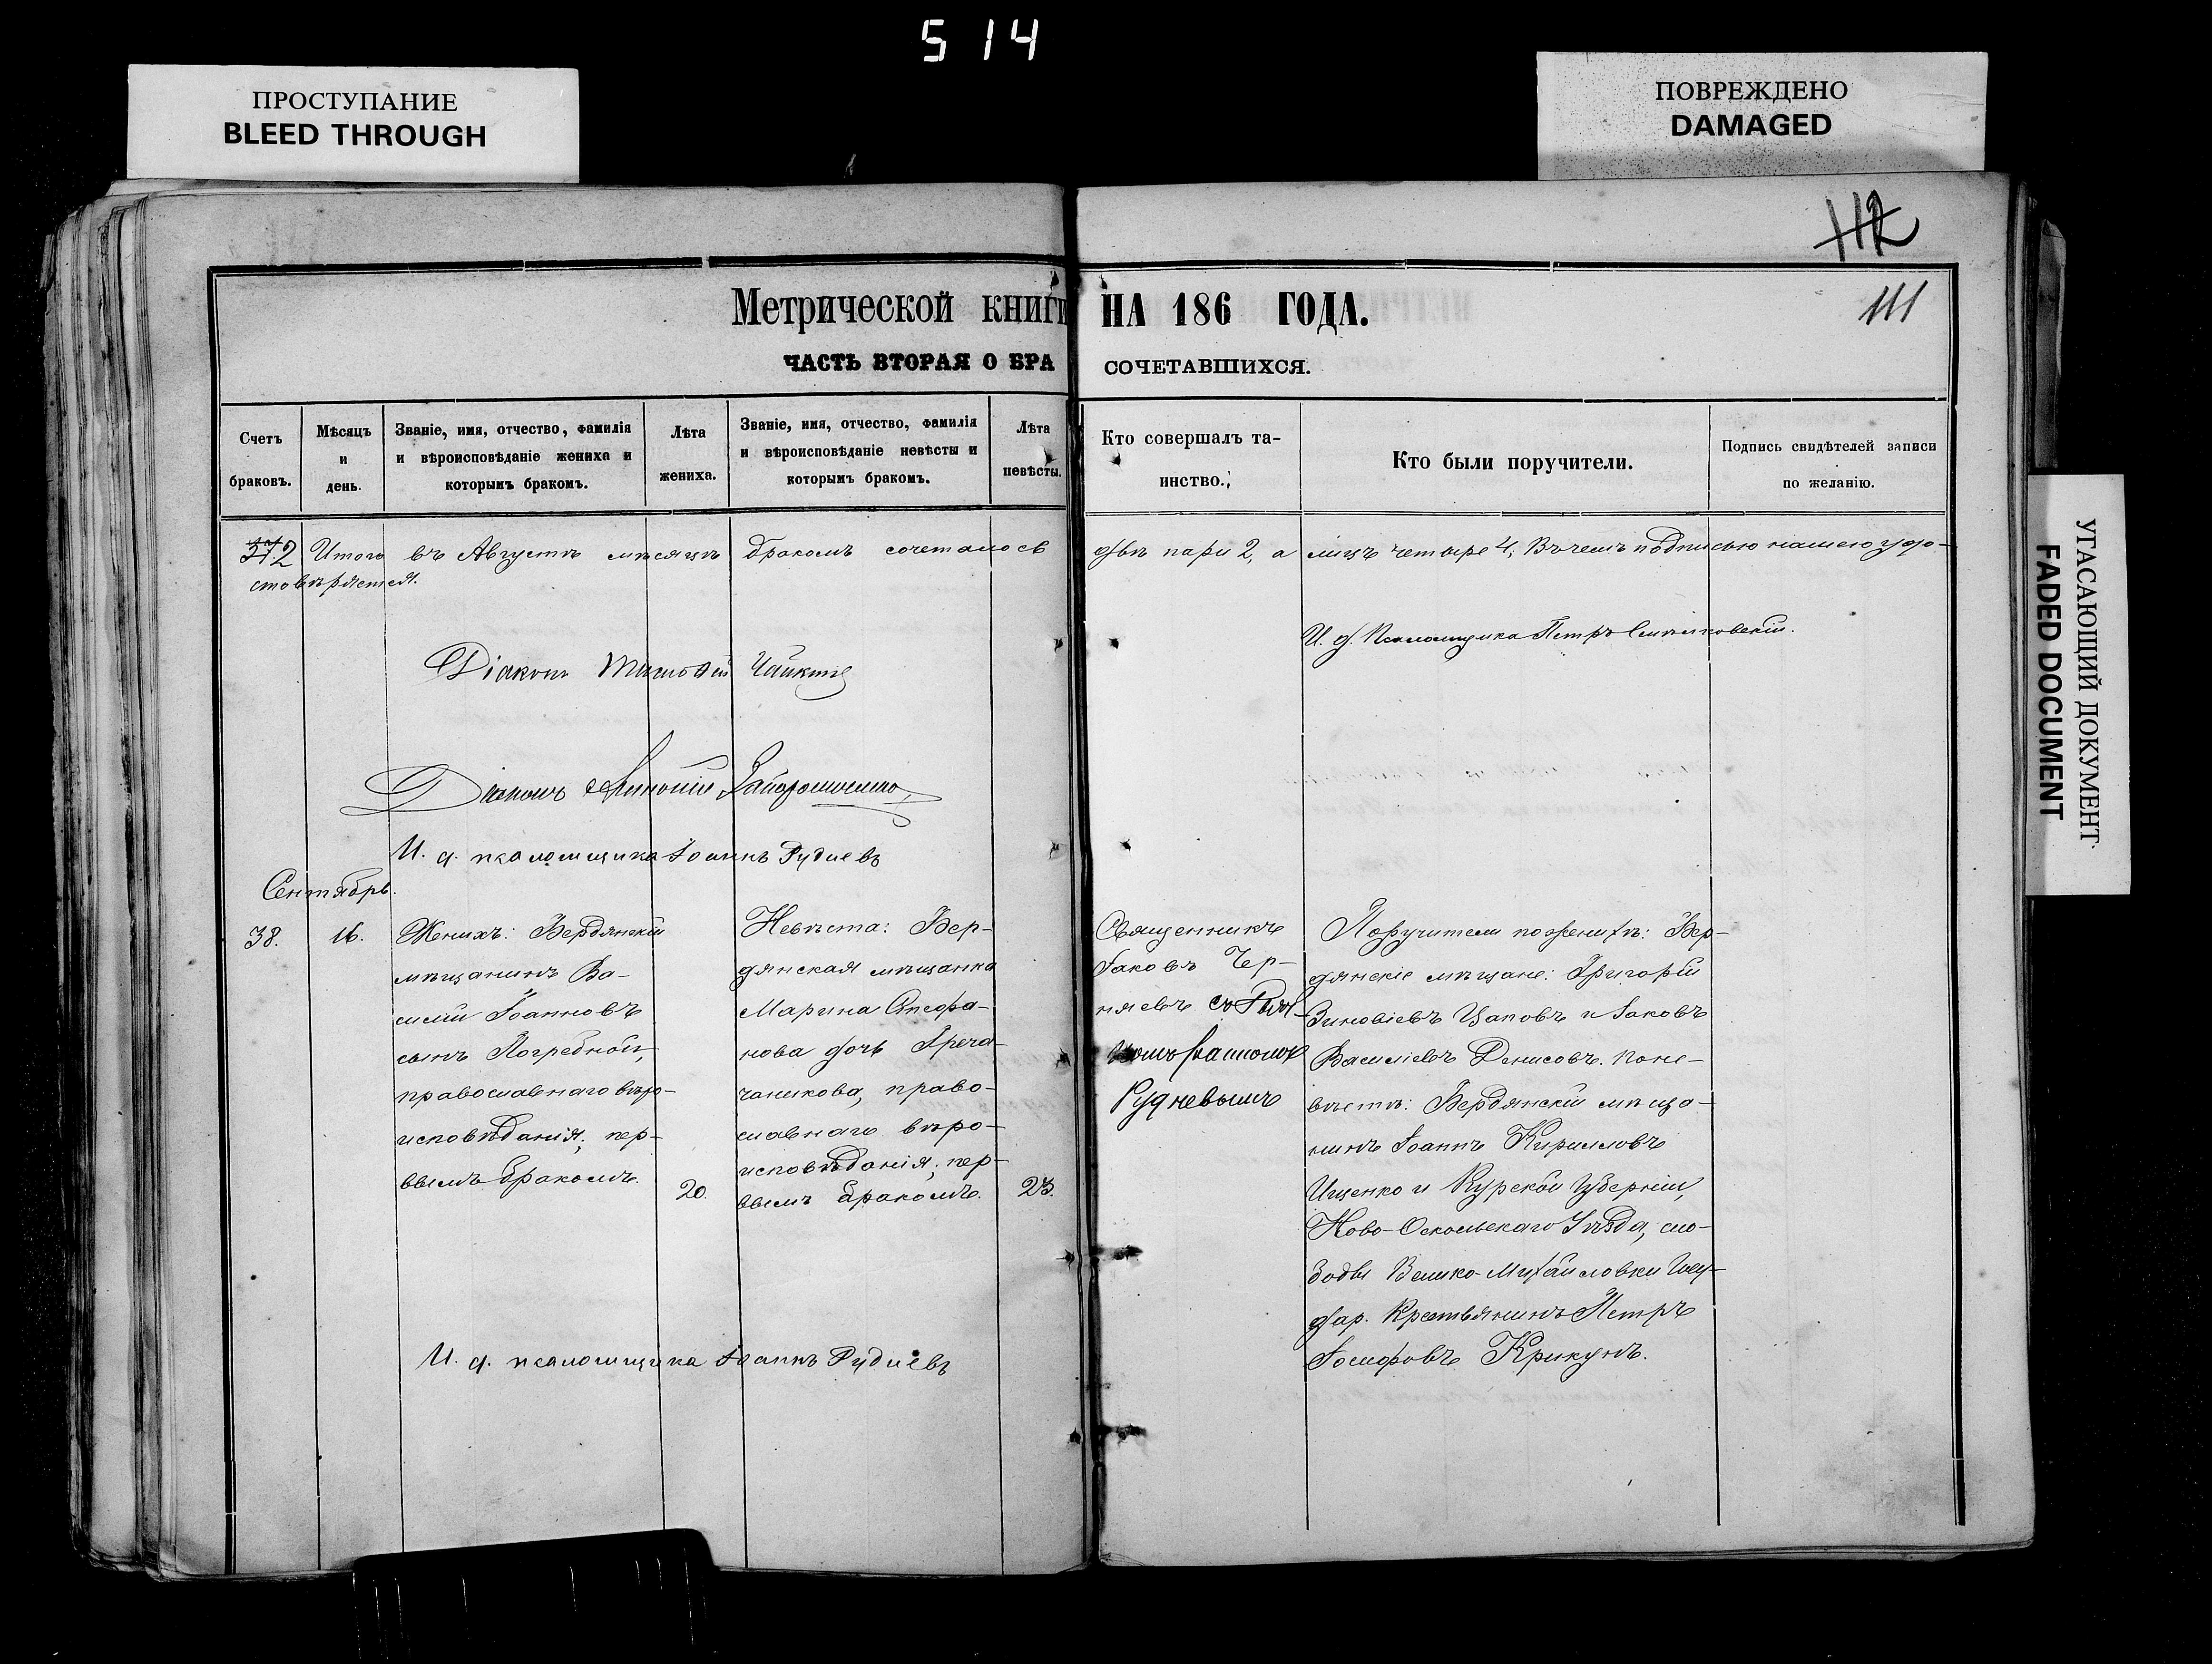 514
ПРОСТУПАНИЕ
BLEED THROUGH
ПОВРЕЖДЕНО
DAMAGED
112
111
Метрической книги НА 186 ГОДА.
ЧАСТЬ ВТОРАЯ О БРА СОЧЕТАВШИХСЯ.
Счетъ браковъ.
Мѣсяцъ и день.
Званіе, имя, отчество, фамилія и вѣроисповѣданіе жениха и которымъ бракомъ.
Лѣта жениха.
Званіе, имя, отчество, фамилія и вѣроисповѣданіе невѣсты и которымъ бракомъ.
Лѣта невѣсты.
Кто совершалъ таинство.
Кто были поручители.
Подпись свидѣтелей записи по желанію.
Итого въ Августѣ мѣсяцѣ бракомъ сочеталось двѣ пары 2, а лицъ четыре 4; Въ чемъ подписью нашею удо-
стовѣряется.
И. д. Псаломщика Петръ
Діаконъ
Діаконъ
И. д. псаломщика Іоаннъ Рудневъ
Сентябрь.
38.
16.
Женихъ: Бердянскій
мѣщанинъ Ва-
силій Іоанновъ
сынъ Погребной,
православнаго вѣро-
исповѣданія, пер-
вымъ бракомъ.
20.
Невѣста: Бер-
дянская мѣщанка
Марина Стефа-
нова дочь Греча-
никова, право-
славнаго вѣро-
исповѣданія, пер-
вымъ бракомъ.
23.
Священникъ
Іаковъ Чер-
няевъ съ
Рудневымъ
Поручители по женихѣ: Бер-
дянскіе мѣщане: Григорій
Зиновіевъ Цаповъ и Іаковъ
Василіевъ Денисовъ. По не-
вѣстѣ: Бердянскій мѣща-
нинъ Іоаннъ Кирилловъ
Ищенко и Курской Губерніи,
Ново-Оскольскаго Уѣзда, сло-
боды Велико-Михайловки Госу-
дар. Крестьянинъ Петръ
Іосифовъ Крикунъ.
И. д. псаломщика Іоаннъ Рудневъ
УГАСАЮЩИЙ ДОКУМЕНТ
FADED DOCUMENT